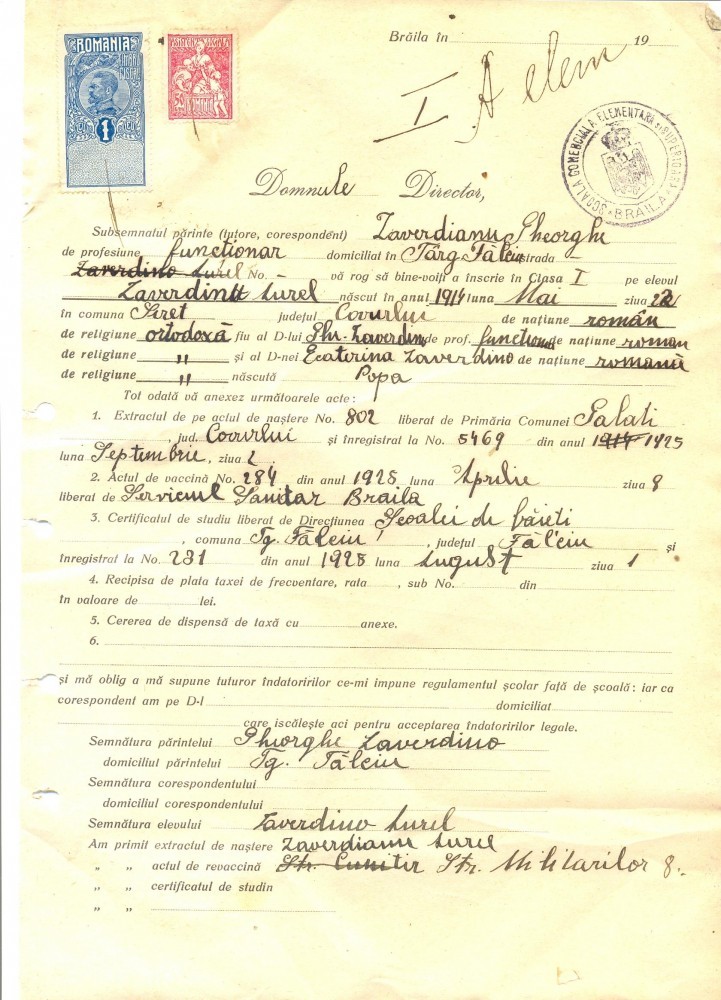 Brăila în 19
ROMANIA
TIMBRU FISCAL
1
ASISTENȚA SOCIALĂ
I A elem
ȘCOALA COMERCIALĂ ELEMENTARĂ ȘI SUPERIOARĂ * BRĂILA *
Domnule Director,
Subsemnatul părinte (tutore, corespondent) Zaverdianu Gheorghe
de profesiune funcționar domiciliat în Târg Fălciu strada –
Zaverdino Aurel No. – vă rog să bine-voiți a înscrie în Clasa I pe elevul
Zaverdinu Aurel născut în anul 1914 luna Mai ziua 22
în comuna Siret județul Covurlui de națiune român
de religiune ortodoxă fiu al D-lui Ghr. Zaverdino de prof. funcționar de națiune roman
de religiune " și al D-nei Ecaterina Zaverdino de națiune romană
de religiune " născută Popa
Tot odată vă anexez următoarele acte:
1. Extractul de pe actul de naștere No. 802 liberat de Primăria Comunei Galati
, jud. Covurlui și înregistrat la No. 5469 din anul 1914 1925
luna Septembrie, ziua 2
2. Actul de vaccină No. 284 din anul 1925 luna Aprilie ziua 8
liberat de Serviciul Sanitar Braila
3. Certificatul de studiu liberat de Direcțiunea Scoalei de băieti
, comuna Tg. Fălciu, județul Fălciu și
înregistrat la No. 231 din anul 1925 luna August ziua 1
4. Recipisa de plata taxei de frecventare, rata , sub No. din
în valoare de lei.
5. Cererea de dispensă de taxă cu anexe.
6.
și mă oblig a mă supune tuturor îndatoririlor ce-mi impune regulamentul școlar față de școală: iar ca
corespondent am pe D-l domiciliat
care iscălește aci pentru acceptarea îndatoririlor legale.
Semnătura părintelui Gheorghe Zaverdino
domiciliul părintelui Tg. Fălciu
Semnătura corespondentului
domiciliul corespondentului
Semnătura elevului Zaverdino Aurel
Am primit extractul de naștere Zaverdianu Aurel
" " actul de revaccină Str. Militarilor 8.
" " certificatul de studiu
" "